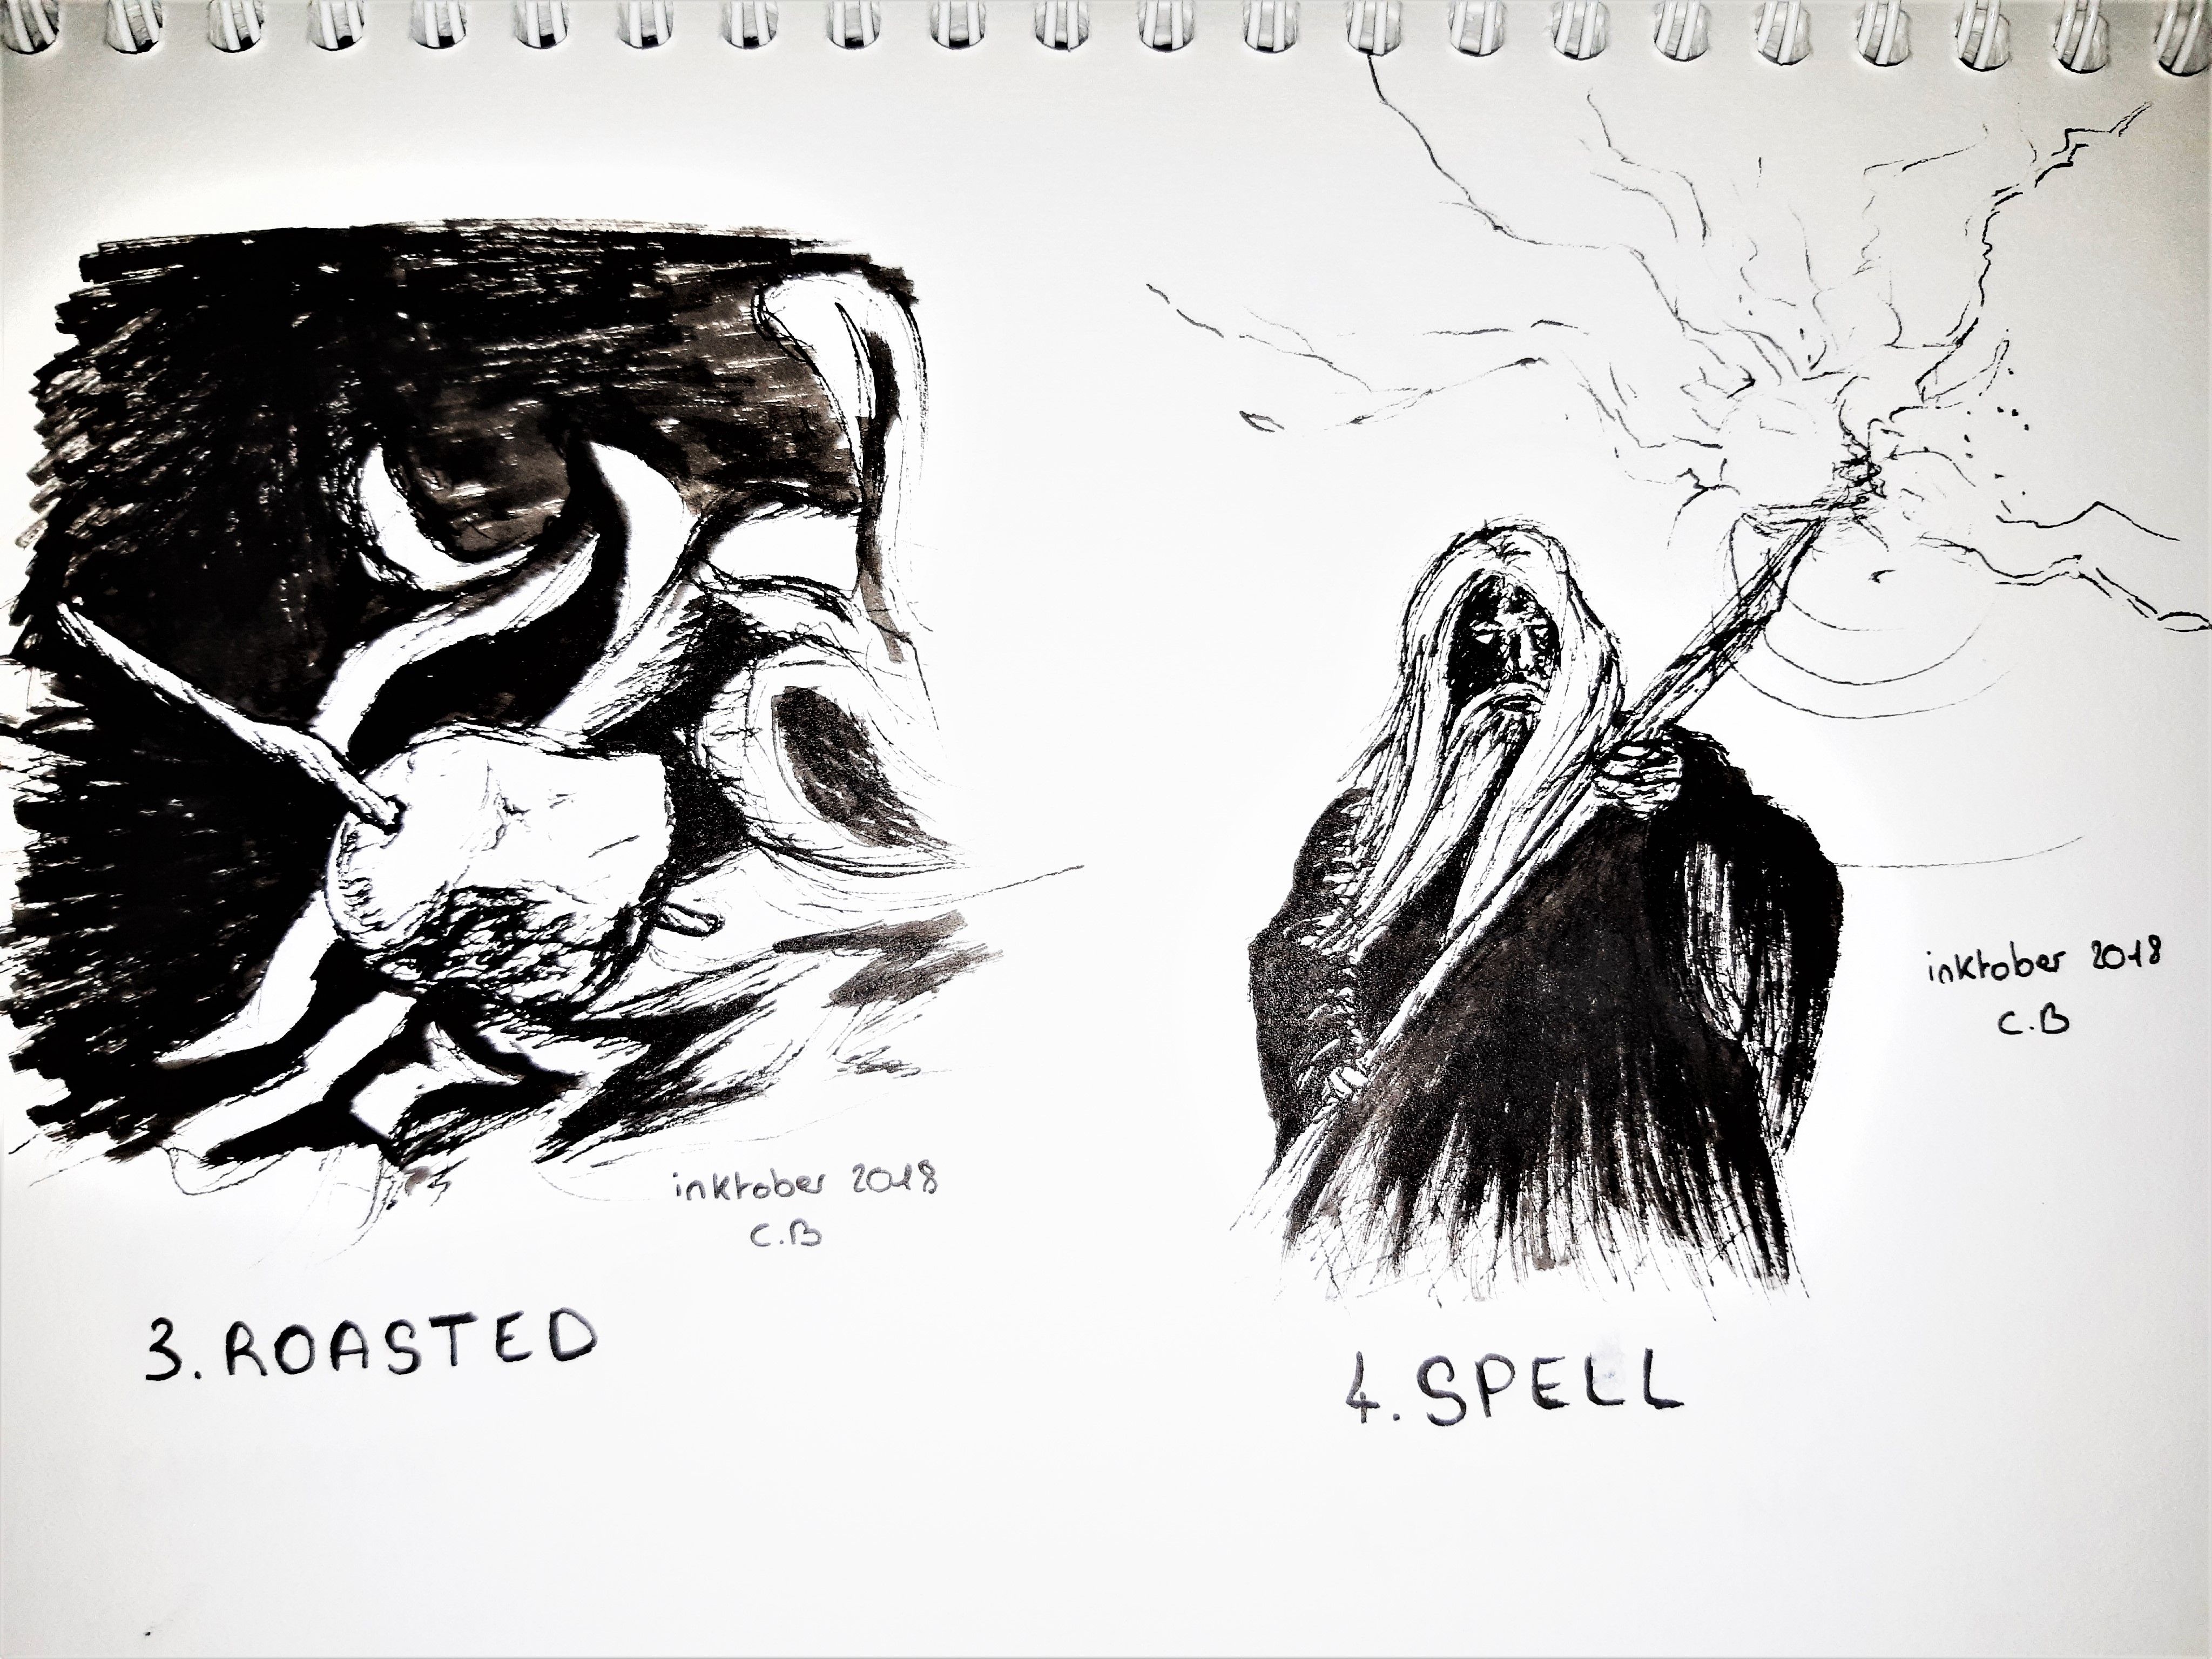 inktober 2018
C.B
3. ROASTED
inktober 2018
C.B
4. SPELL